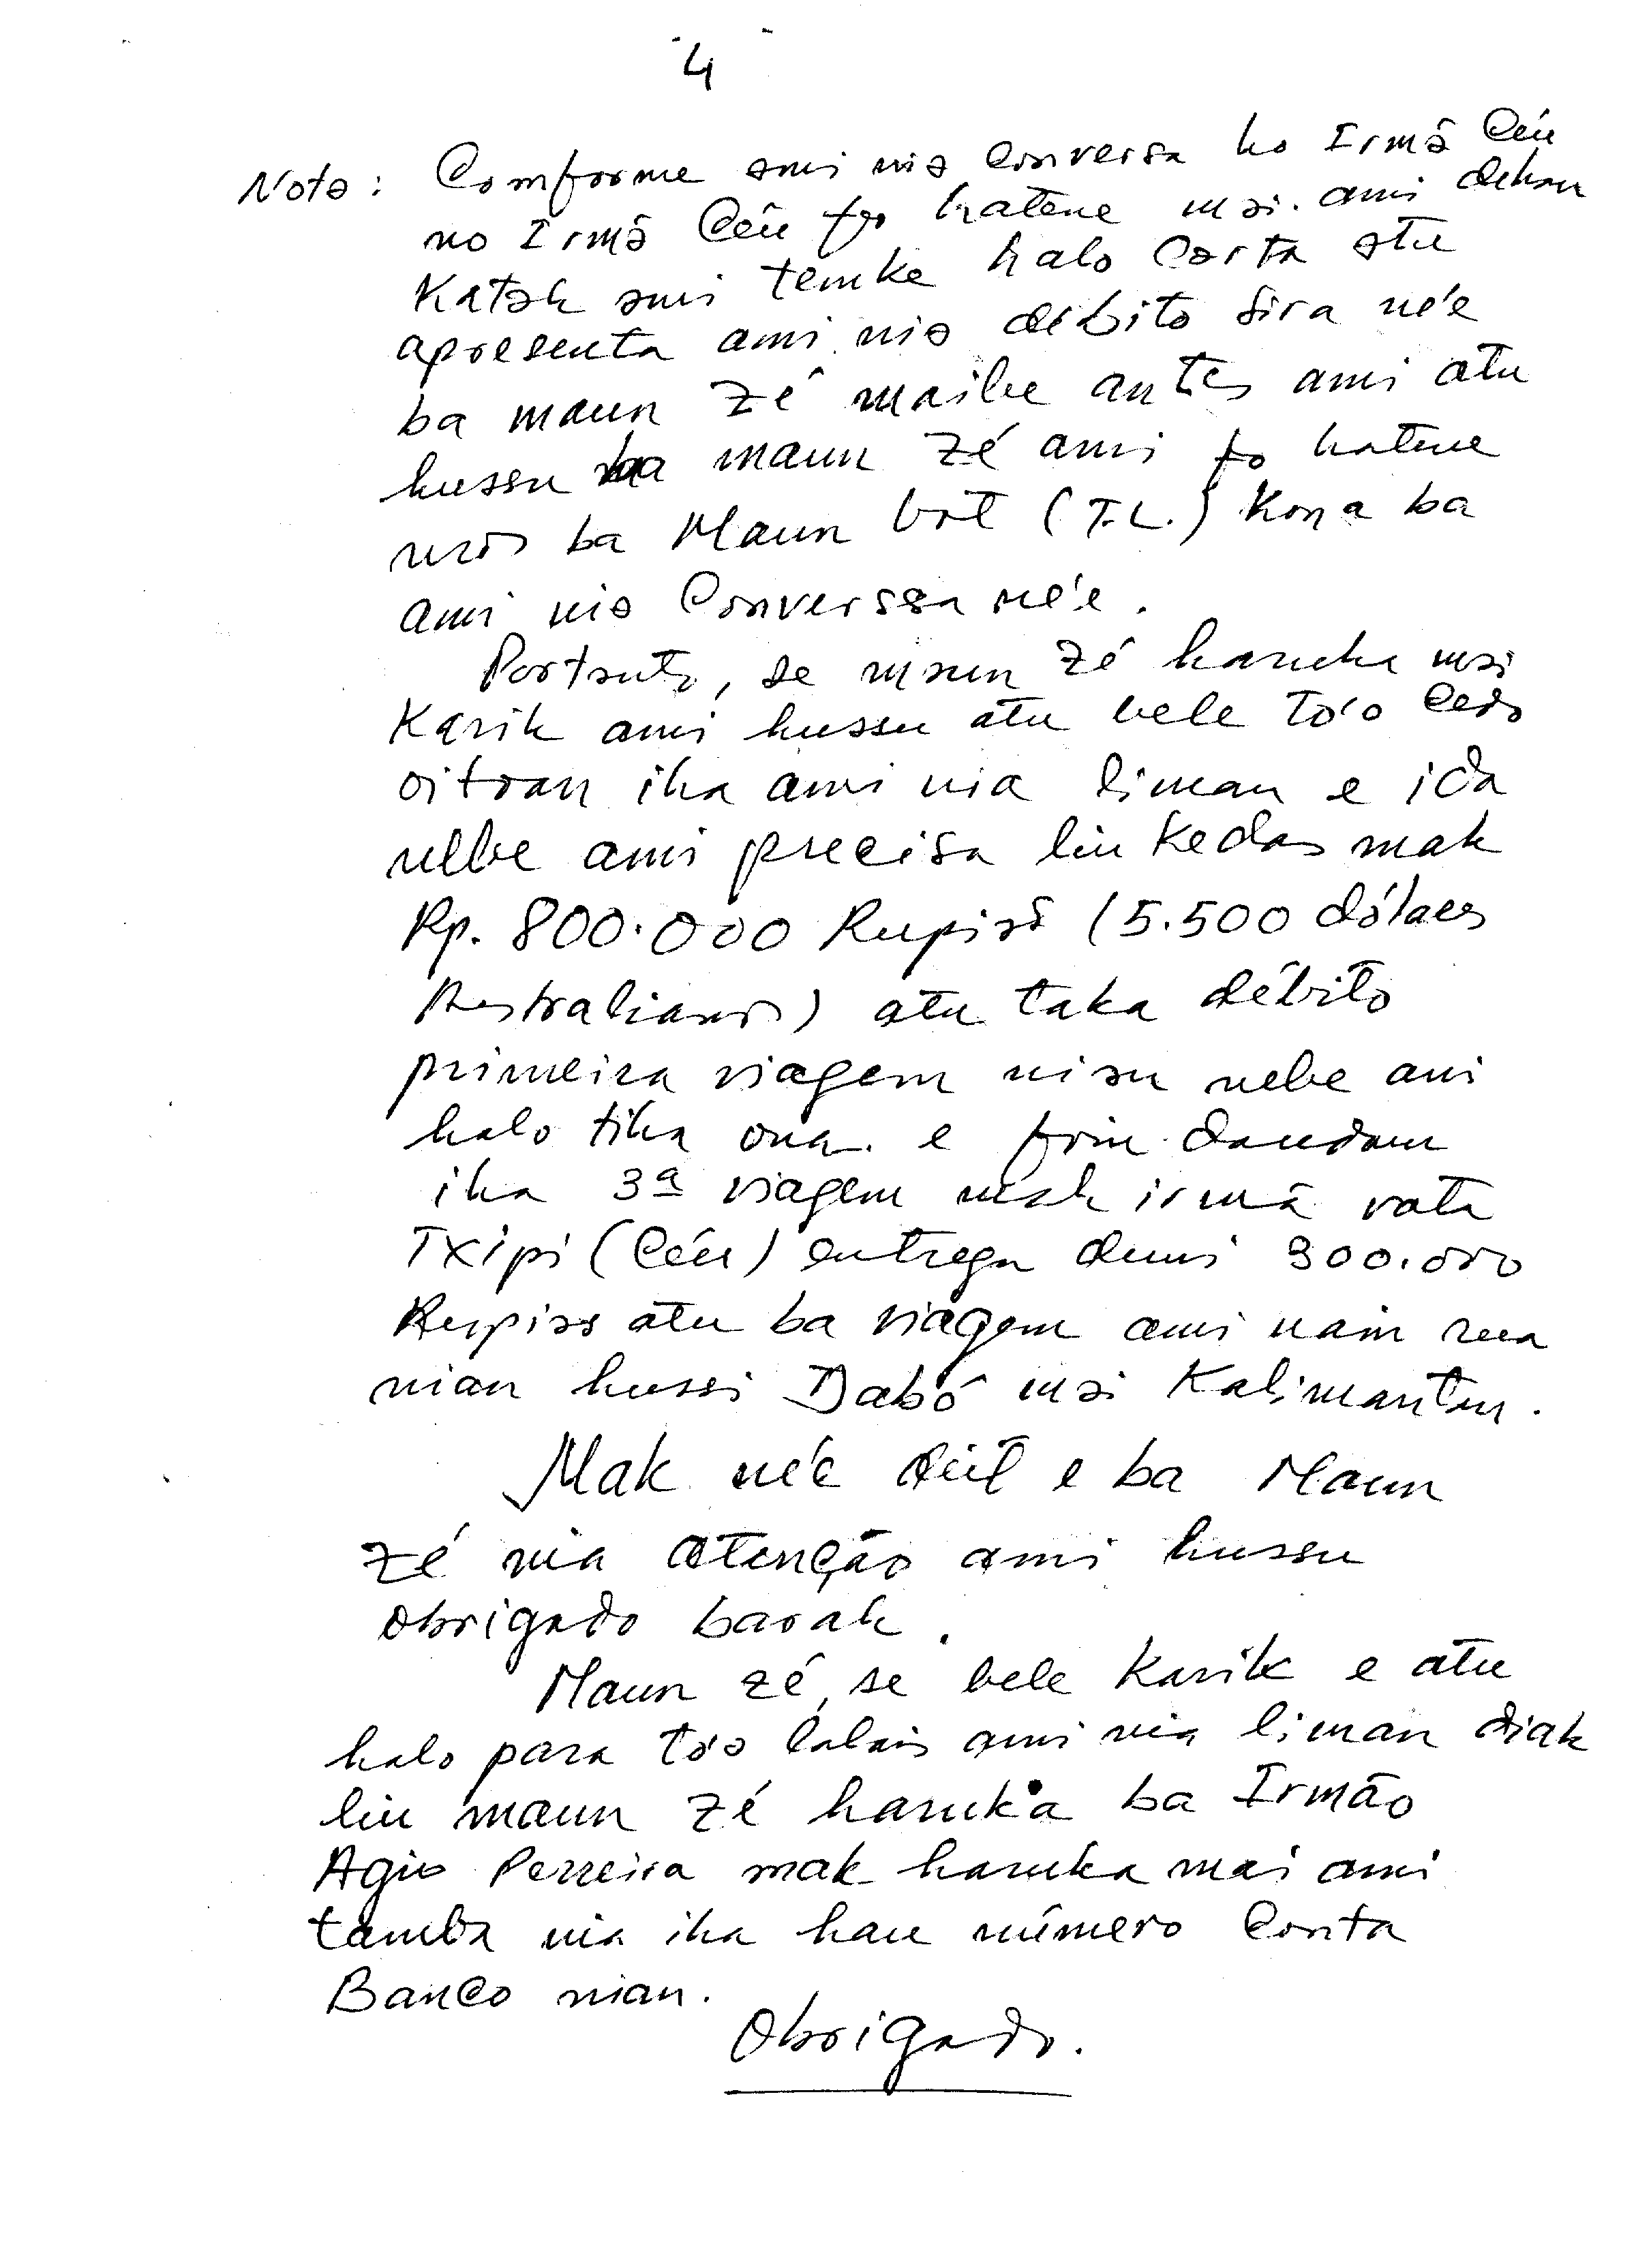 4
Nota: Comforme ami nia conversa ho Irmã Céu
no Irmã Céu fo hatene mai ami dehan
Katak ami tenke halo Carta atu
apresenta ami nia débito sira né'e
ba maun Zé maibe antes ami atu
hussu ba maun Zé ami fo hatene
uros ba Maun bot (T.L.) Kona ba
ami nia Converssa né'e.
Portanto, se maun Zé haruka mai
Karik ami hussu atu bele to'o Cedo
oitoan iha ami nia liman e ida
nebe ami precisa liu Kedas mak
Rp. 800.000 Rupias (5.500 dólares
Australianos) atu taka débito
primeira viagem nian nebe ami
halo tiha ona. e foin daudaun
iha 3ª viagem mak irmã
Txipi (Céu) entrega dumi 300.000
Rupias atu ba viagem ami nain rua
nian hussi Dabó mai Kalimantan.
Mak né'e deit e ba Maun
Zé nia atenção ami hussu
Obrigado barak.
Maun Zé, se bele Karik e atu
halo para to'o lalais ami nia liman diak
liu maun Zé haruka ba Irmão
Agio Perreira mak haruka mai ami
tamba nia iha hau número Conta
Banco nian.
Obrigado.